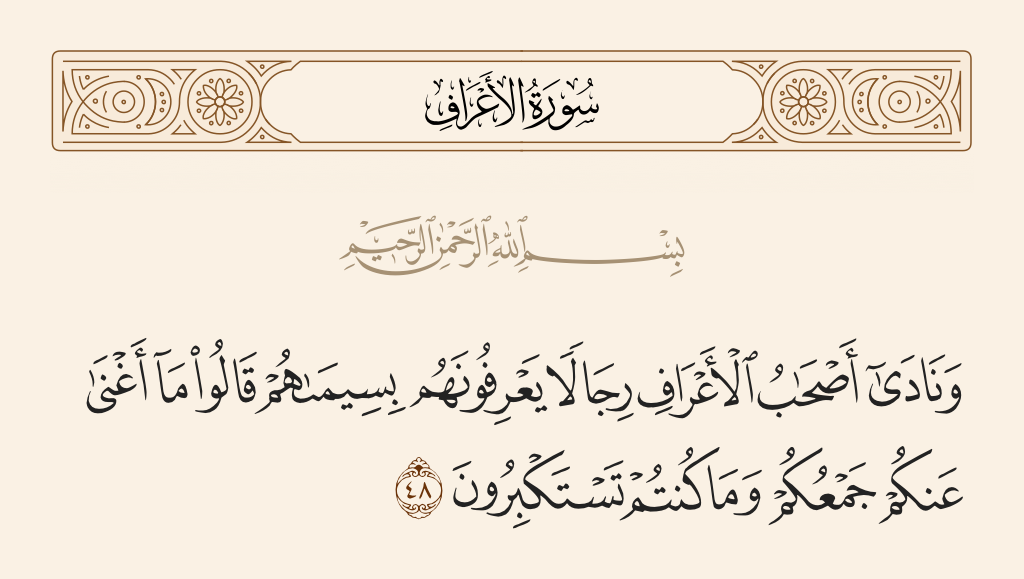 سُورَةُ الأَعْرَافِ
بِسْمِ ٱللَّهِ ٱلرَّحْمَٰنِ ٱلرَّحِيمِ
وَنَادَىٰٓ أَصْحَٰبُ ٱلْأَعْرَافِ رِجَالًا يَعْرِفُونَهُم بِسِيمَىٰهُمْ قَالُوا۟ مَآ أَغْنَىٰ
عَنكُمْ جَمْعُكُمْ وَمَا كُنتُمْ تَسْتَكْبِرُونَ ٤٨